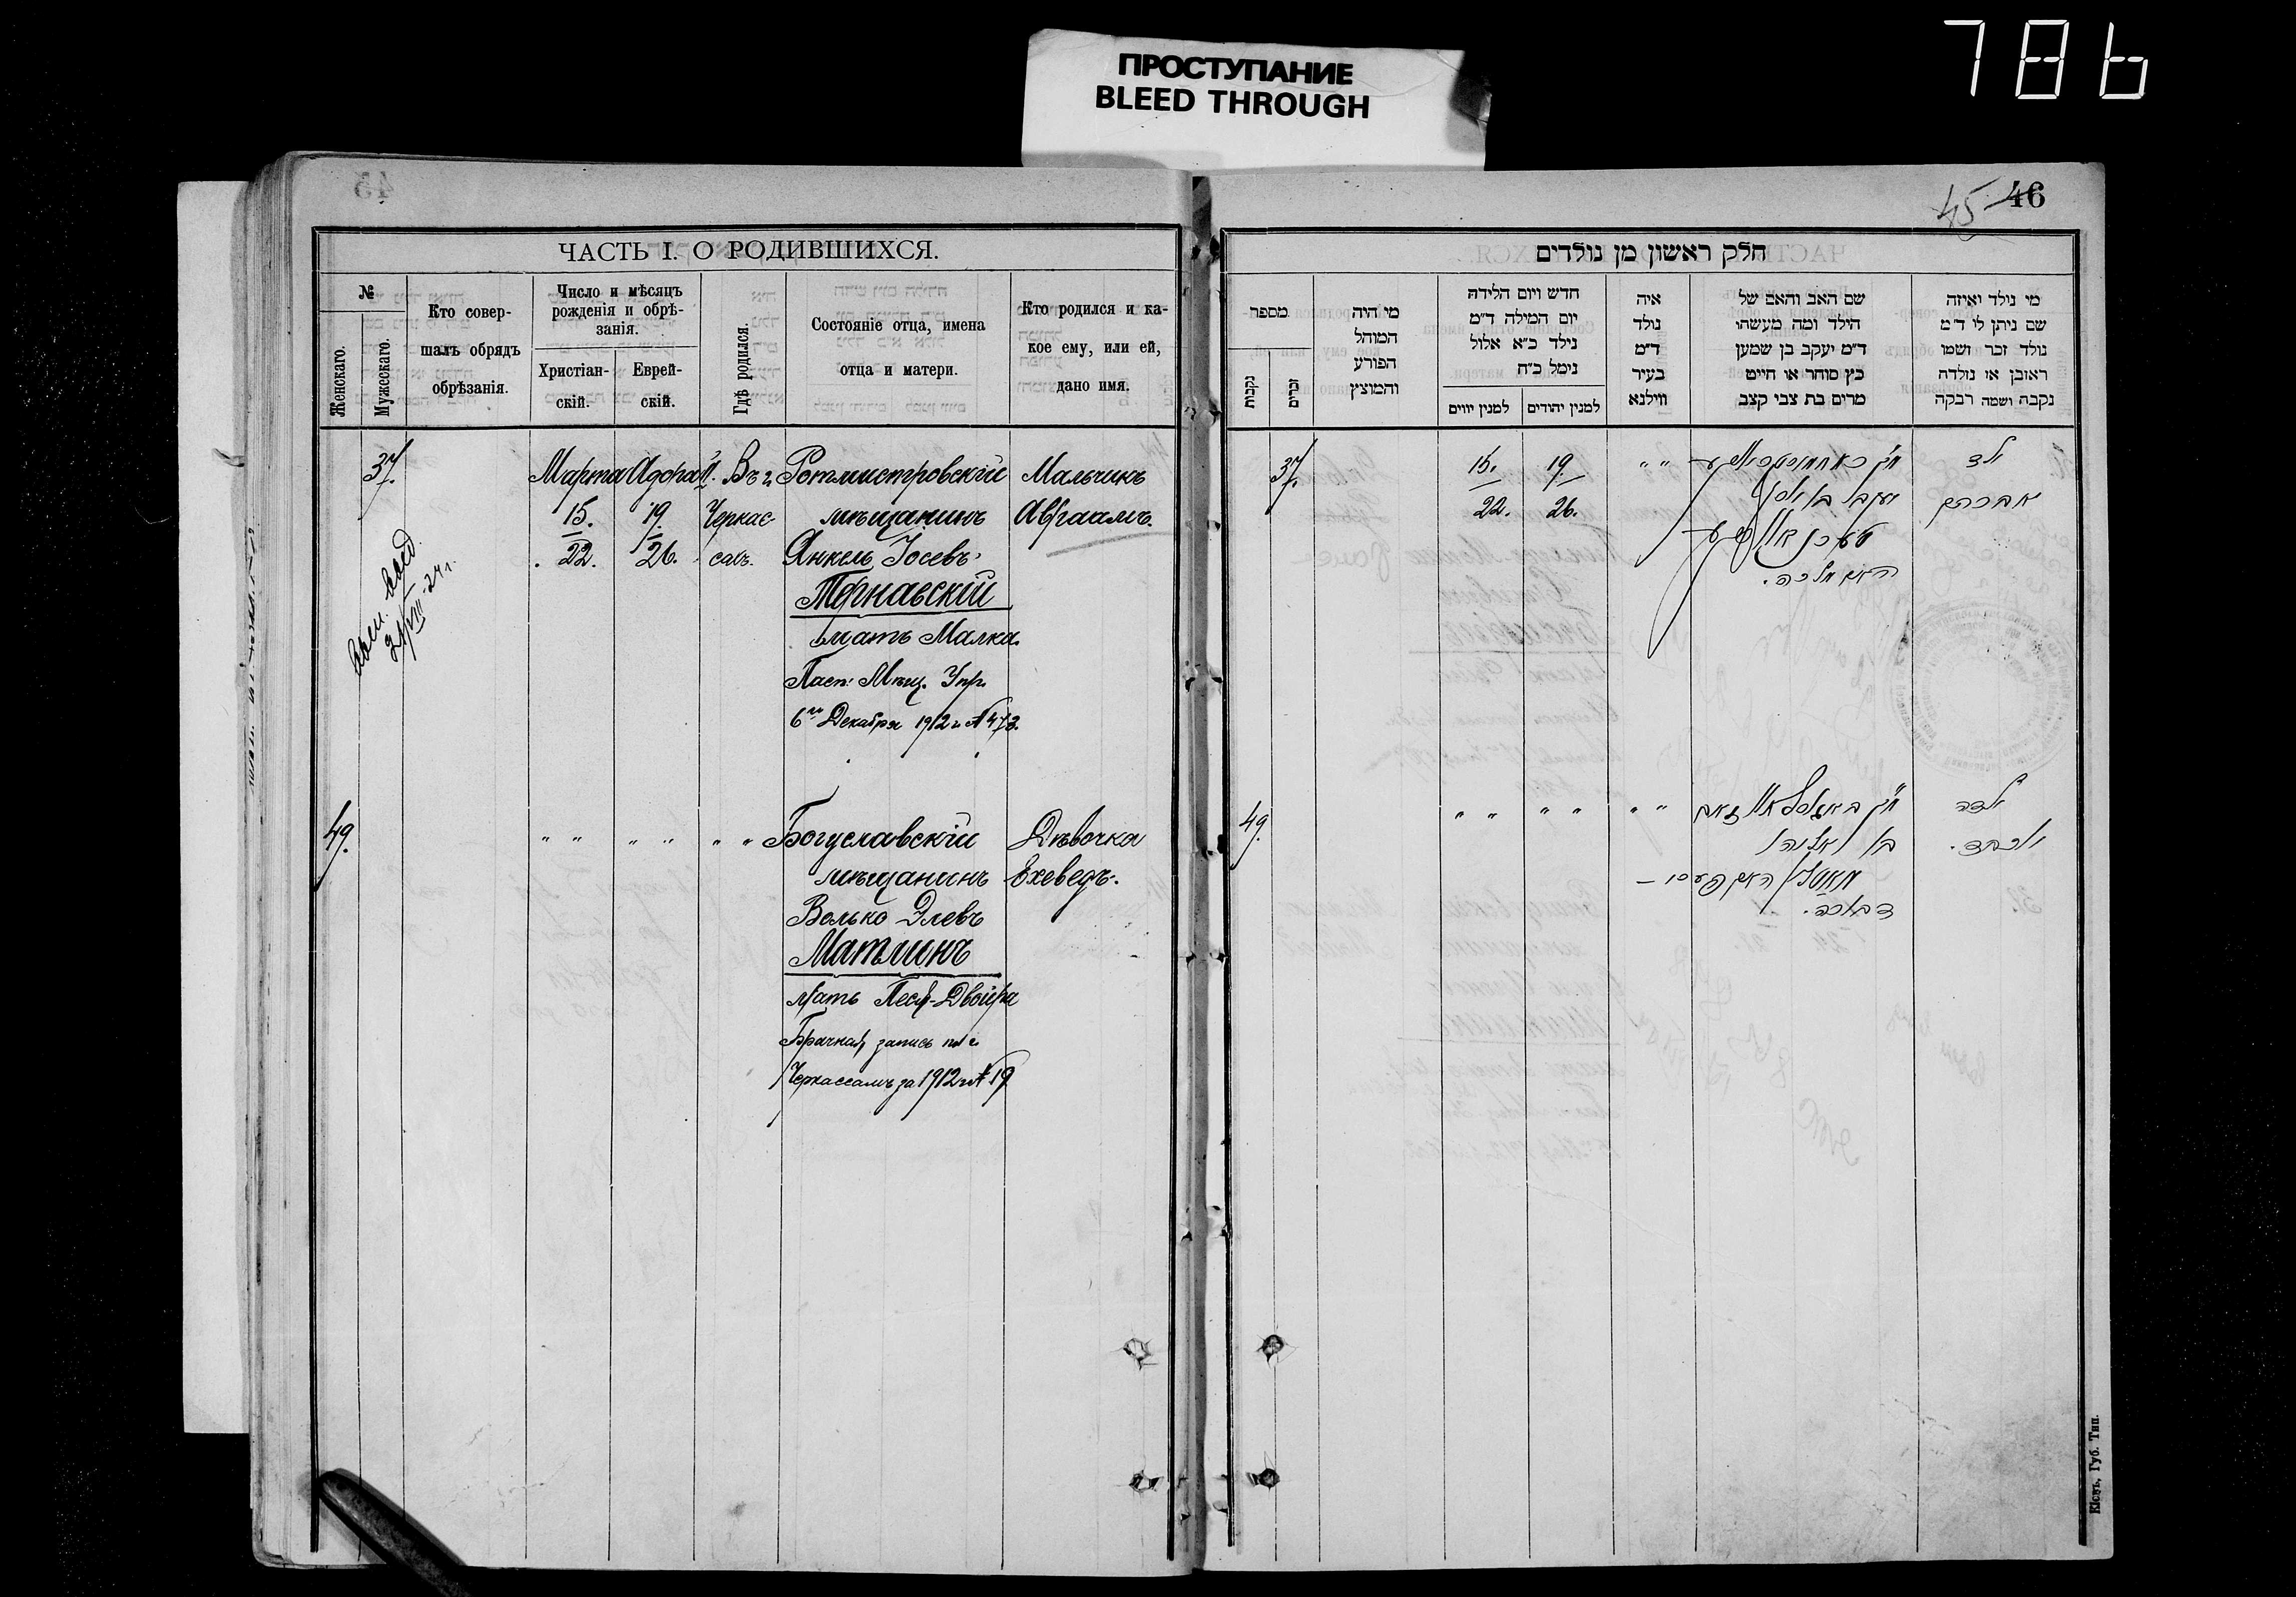 786
ПРОСТУПАНИЕ
BLEED THROUGH
45
46
ЧАСТЬ I. О РОДИВШИХСЯ.
№
Женскаго.
Мужескаго.
Кто совер-
шалъ обрядъ
обрѣзанія.
Число и мѣсяцъ
рожденія и обрѣ-
занія.
Христіан-
скій.
Еврей-
скій.
Гдѣ родился.
Состояніе отца, имена
отца и матери.
Кто родился и ка-
кое ему, или ей,
дано имя.
37.
Марта Адора II. Въ г. Ротмистровскій Мальчикъ
15. 19. Черкас- мѣщанинъ Авраамъ.
22. 26. сахъ. Янкель Іосевъ
Тернавскій
мать Малка.
Пасп. Мѣщ. Упр.
6го Декабря 1912 г. № 473.
49.
" " " " " " Богуславскій Дѣвочка
мѣщанинъ Ехеведъ.
Волько Элевъ
Матлинъ
мать Песя-Двойра
Брачная запись по г.
Черкассамъ за 1912 г. № 19
חלק ראשון מן נולדים
מספר
נקבות
זכרים
מי היה
המוהל
הפורע
והמוצץ
חדש ויום הלידה
יום המילה ד״מ
נילד כ״א אלול
נימל כ״ח
למנין יווים
למנין יהודים
איה
נולד
ד״מ
בעיר
ווילנא
שם האב והאם של
הילד ומה מעשהו
ד״מ יעקב בן שמען
כץ סוחר או חייט
מרים בת צבי קצב
מי נולד ואיזה
שם ניתן לו ד״מ
נולד זכר ושמו
ראובן או נולדה
נקבה ושמה רבקה
37.
15. 19. " "
22. 26.
ילד
אברהם
יעקב בן יוסף
האם מלכה.
49.
" " " " " "
ילדה
יוכבד.
דבורה.
Кіевъ, Губ. Тип.